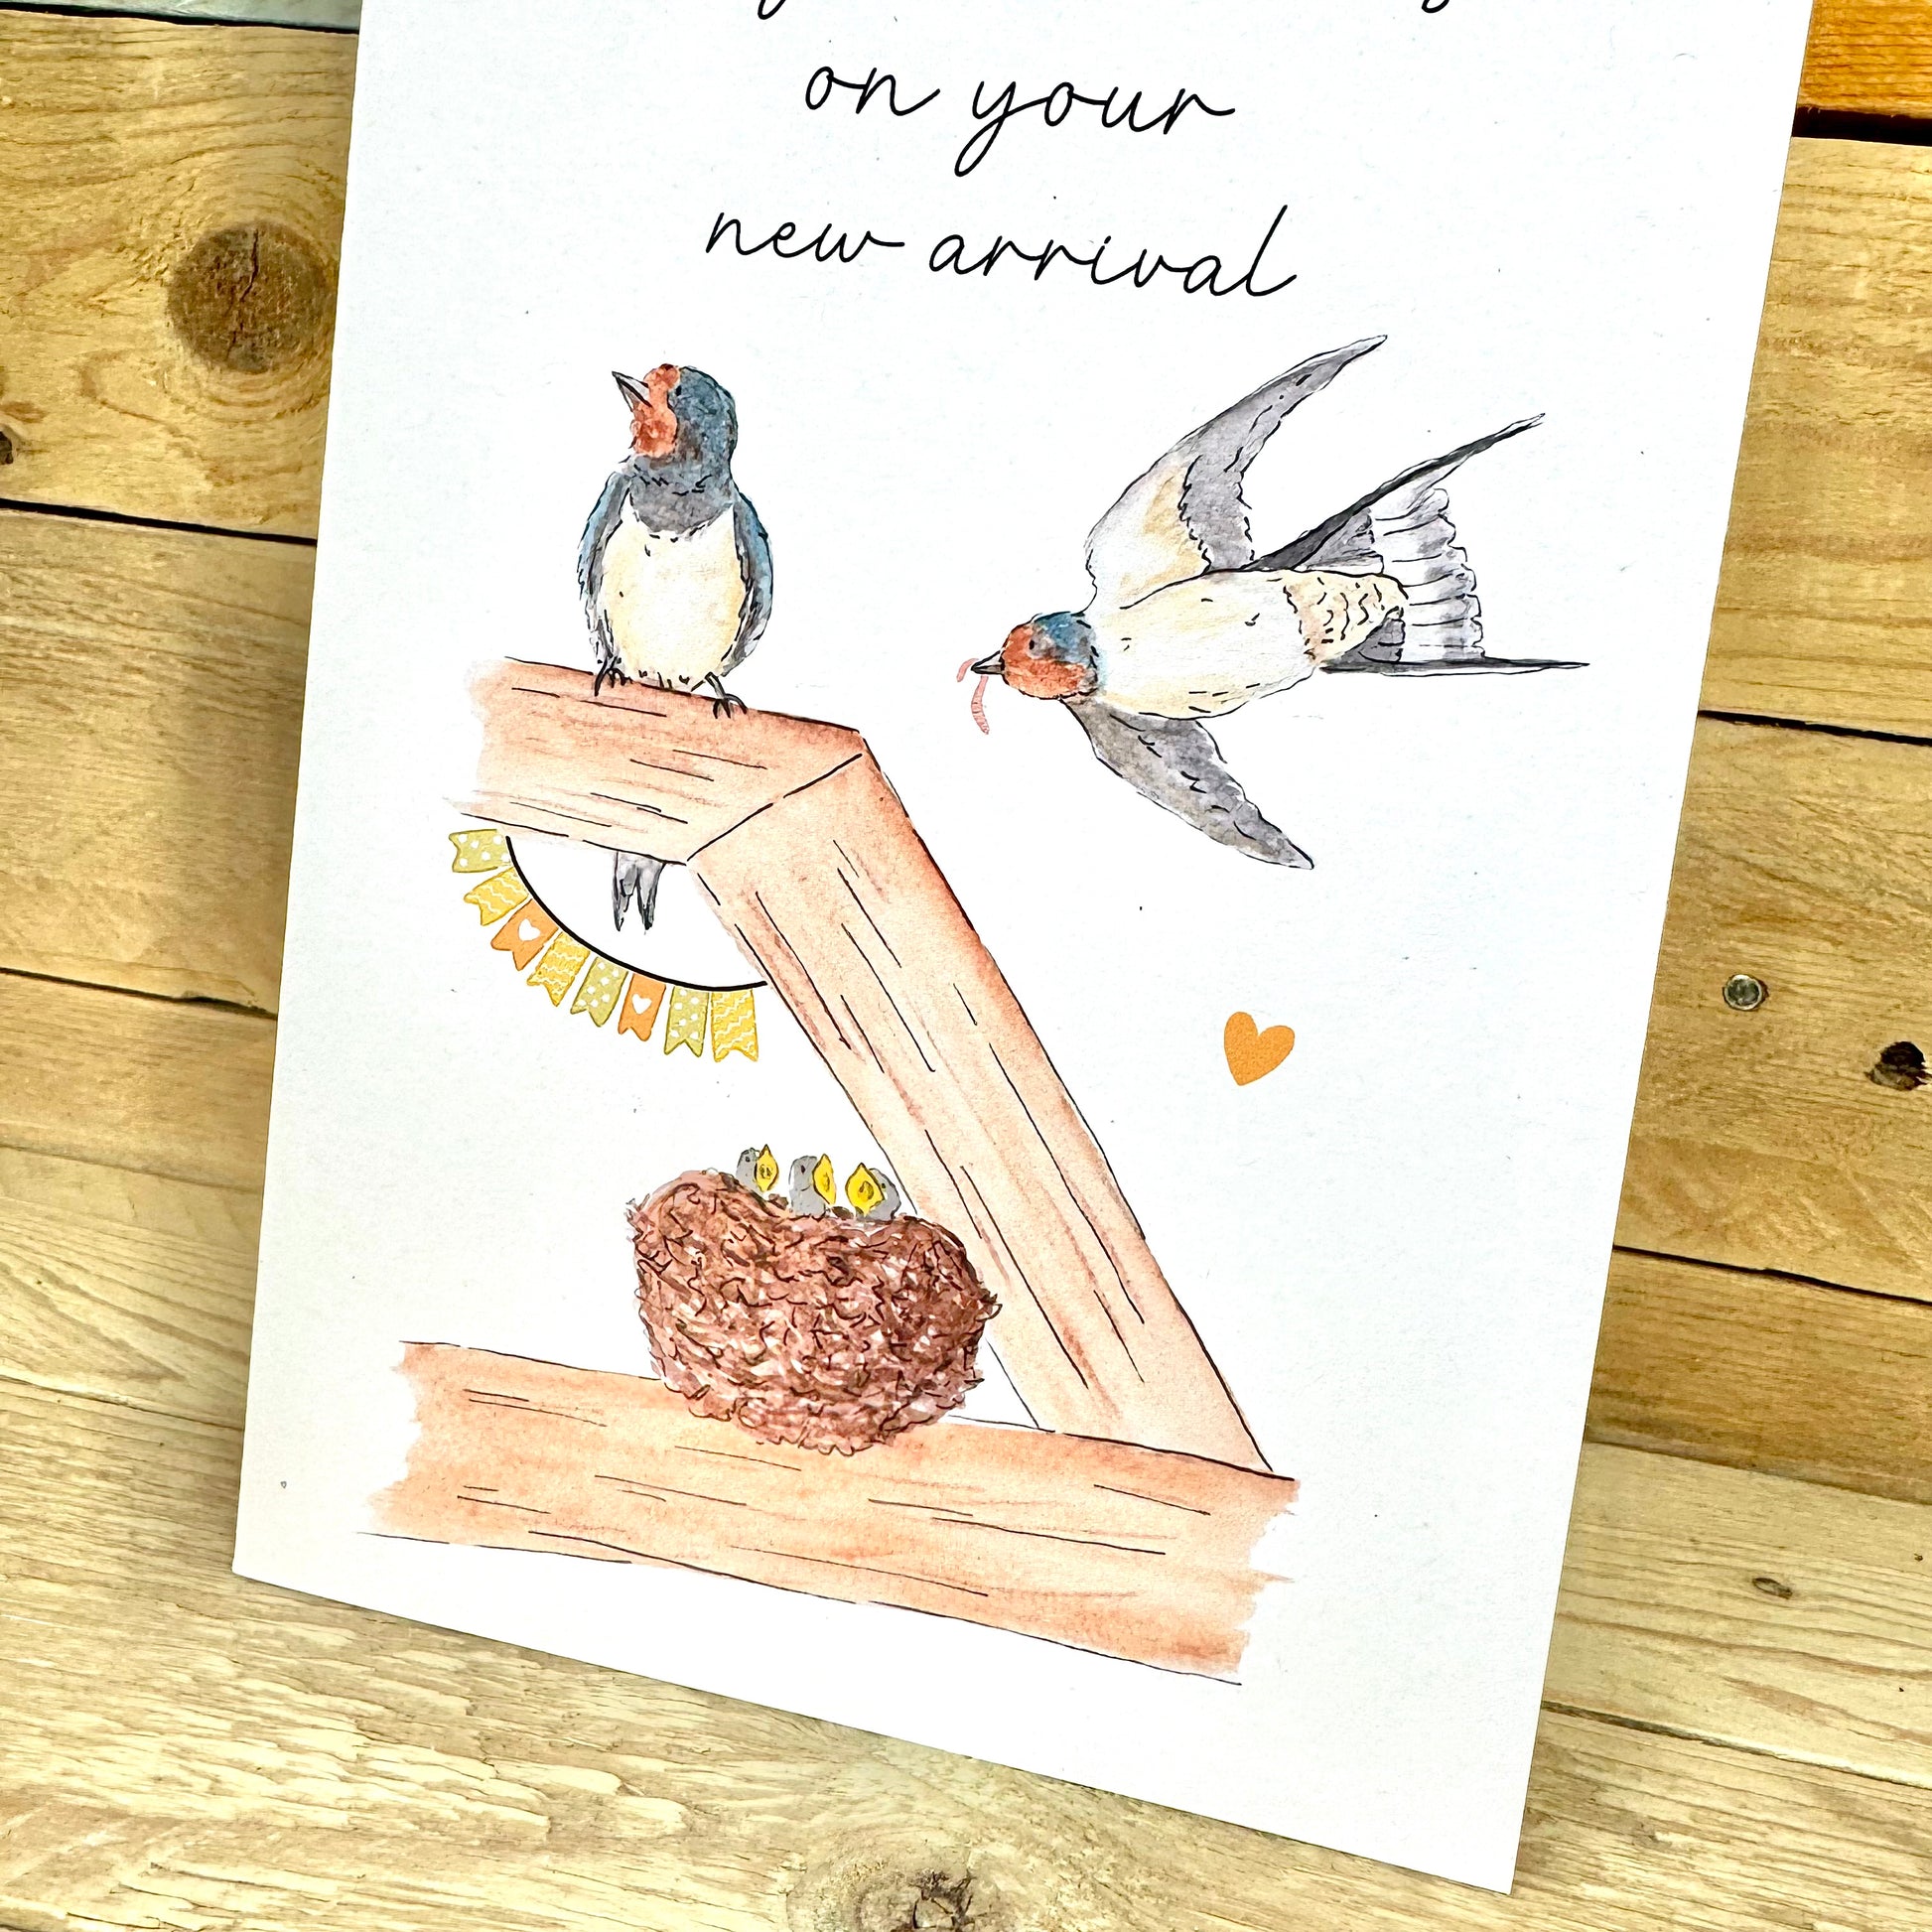 on your
new arrival